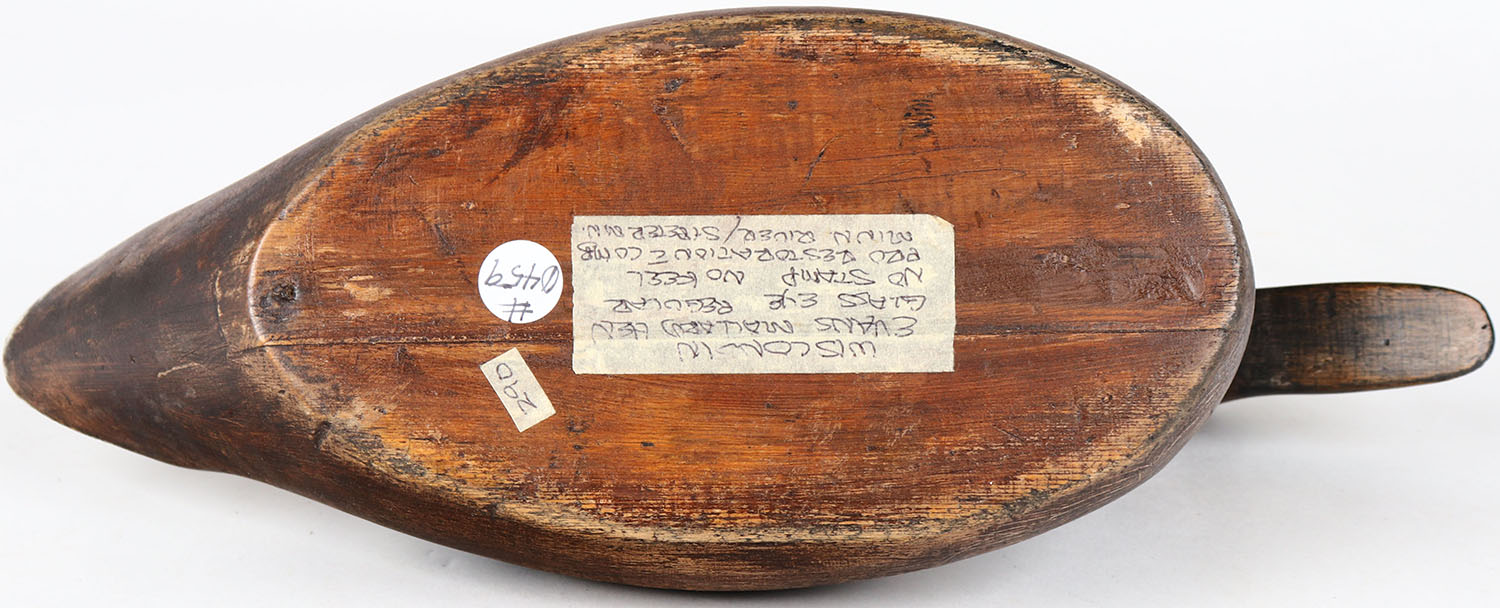 WISCONSIN
EVANS MALLARD HEN
GLASS EYE REGULAR
NO STAMP NO KEEL
PRO RESTORATION E COMB
MINN RIVER/ST PETER MN.
#
0459
220